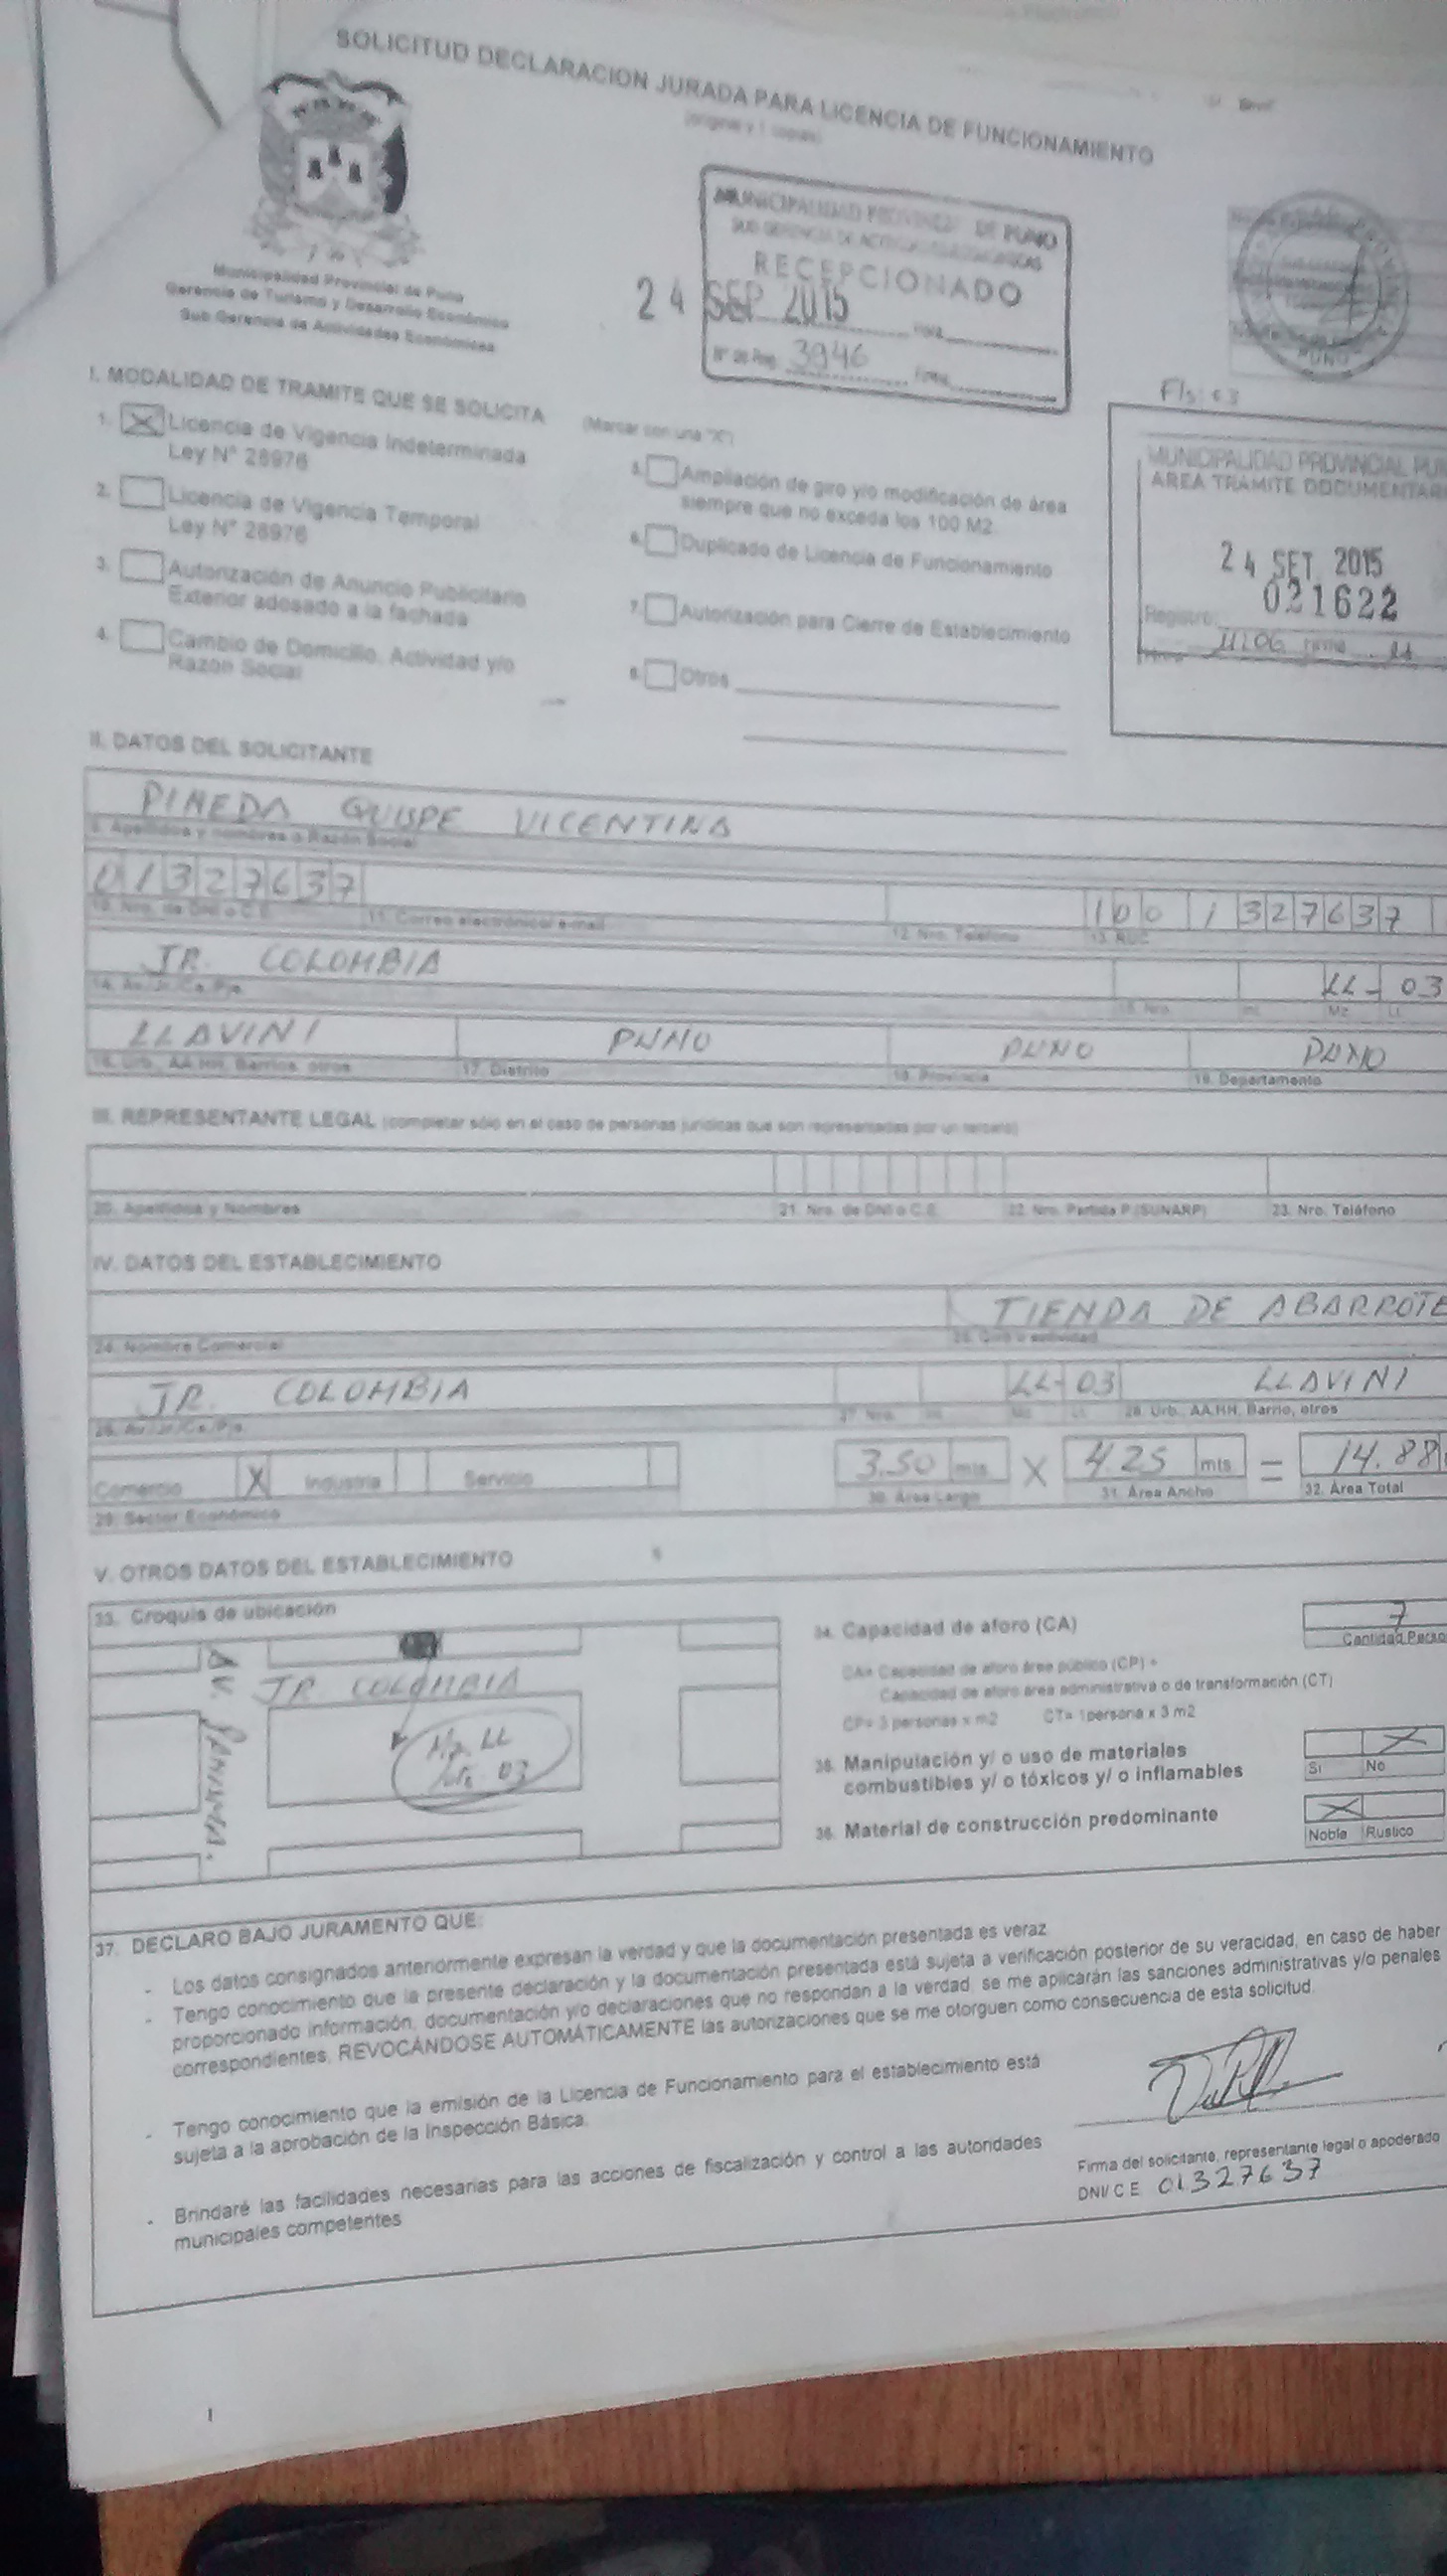 SOLICITUD DECLARACION JURADA PARA LICENCIA DE FUNCIONAMIENTO
(original y 1 copias)
Municipalidad Provincial de Puno
Gerencia de Turismo y Desarrollo Económico
Sub Gerencia de Actividades Económicas
MUNICIPALIDAD PROVINCIAL DE PUNO
SUB GERENCIA DE ACTIVIDADES ECONOMICAS
RECEPCIONADO
24 SEP 2015
N° de Reg. 3946
PUNO
Fls: 03
MUNICIPALIDAD PROVINCIAL PUN
AREA TRAMITE DOCUMENTAR
24 SET. 2015
021622
Registro:
I. MODALIDAD DE TRAMITE QUE SE SOLICITA (Marcar con una "X")
1. X Licencia de Vigencia Indeterminada
Ley N° 28976
2. Licencia de Vigencia Temporal
Ley N° 28976
3. Autorización de Anuncio Publicitario
Exterior adosado a la fachada
4. Cambio de Domicilio, Actividad y/o
Razón Social
5. Ampliación de giro y/o modificación de área
siempre que no exceda los 100 M2.
6. Duplicado de Licencia de Funcionamiento
7. Autorización para Cierre de Establecimiento
8. Otros
II. DATOS DEL SOLICITANTE
PINEDA QUISPE VICENTINA
9. Apellidos y nombres o Razón Social
01327637 100 1 327637
10. Nro. de DNI o C.E. 11. Correo electrónico/ e-mail 12. Nro. Teléfono 13. RUC
JR. COLOMBIA LL- 03
14. Av./Jr./Ca./Pje. 15. Nro. Int. Mz. Lt.
LLAVINI PUNO PUNO PUNO
16. Urb., AA.HH, Barrios, otros 17. Distrito 18. Provincia 19. Departamento
III. REPRESENTANTE LEGAL (completar sólo en el caso de personas jurídicas que son representadas por un tercero)
20. Apellidos y Nombres 21. Nro. de DNI o C.E. 22. Nro. Partida P.(SUNARP) 23. Nro. Teléfono
IV. DATOS DEL ESTABLECIMIENTO
TIENDA DE ABARROTE
24. Nombre Comercial 25. Giro o actividad
JR. COLOMBIA LL- 03 LLAVINI
26. Av./Jr./Ca./Pje. 27. Nro. Int. Mz. Lt. 28. Urb., AA.HH, Barrio, otros
Comercio X Industria Servicio 3.50 mts. X 4.25 mts = 14.88
29. Sector Económico 30. Área Largo 31. Área Ancho 32. Área Total
V. OTROS DATOS DEL ESTABLECIMIENTO
33. Croquis de ubicación
AV.
JR. COLOMBIA
Mz. LL
Lte. 03
34. Capacidad de aforo (CA) 7
Cantidad Perso
CA= Capacidad de aforo área público (CP) +
Capacidad de aforo área administrativa o de transformación (CT)
CP= 3 personas x m2 CT= 1persona x 3 m2
35. Manipulación y/ o uso de materiales
combustibles y/ o tóxicos y/ o inflamables
X
Si No
36. Material de construcción predominante
X
Noble Rustico
37. DECLARO BAJO JURAMENTO QUE:
- Los datos consignados anteriormente expresan la verdad y que la documentación presentada es veraz.
- Tengo conocimiento que la presente declaración y la documentación presentada está sujeta a verificación posterior de su veracidad, en caso de haber
proporcionado información, documentación y/o declaraciones que no respondan a la verdad, se me aplicarán las sanciones administrativas y/o penales
correspondientes, REVOCÁNDOSE AUTOMÁTICAMENTE las autorizaciones que se me otorguen como consecuencia de esta solicitud.
- Tengo conocimiento que la emisión de la Licencia de Funcionamiento para el establecimiento está
sujeta a la aprobación de la Inspección Básica.
- Brindaré las facilidades necesarias para las acciones de fiscalización y control a las autoridades
municipales competentes
Firma del solicitante, representante legal o apoderado
DNI/ C.E. 01327637